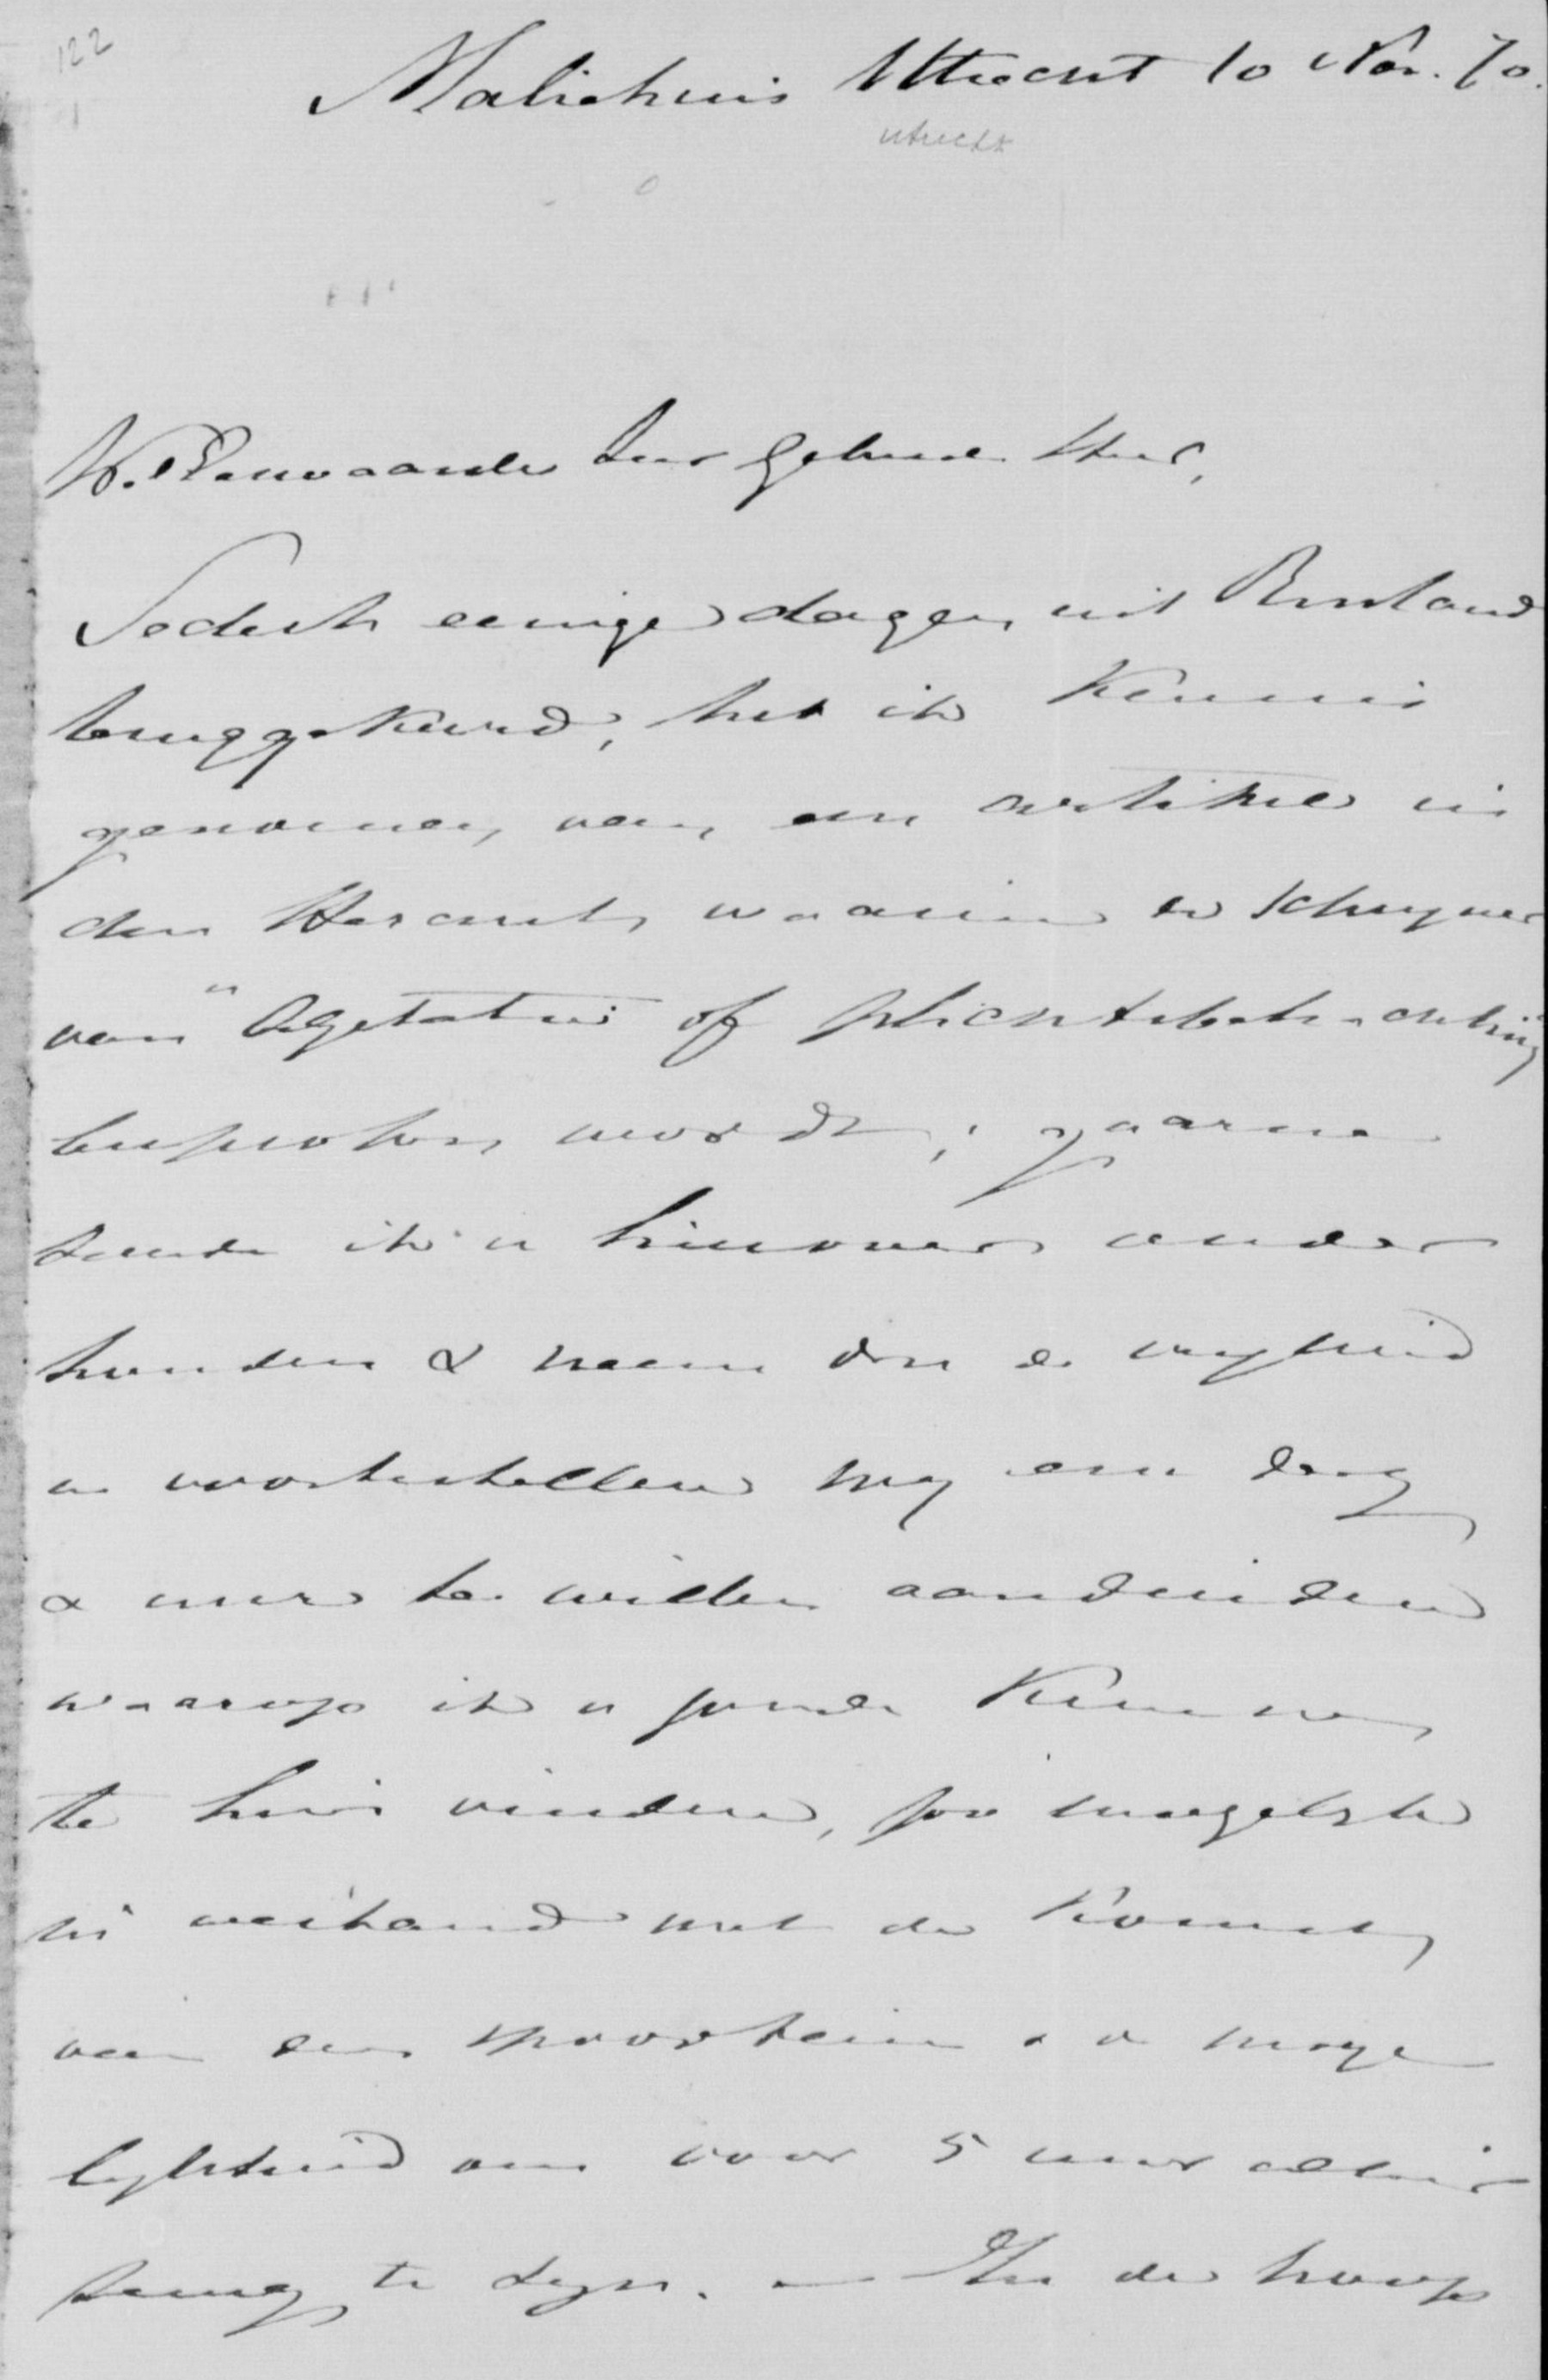 122
Maliehuis Utrecht 10 Nov. 70.
utrecht
WelEerwaarde Zeer Geleerde Heer,
Sedert eenige dagen uit Rusland
teruggekeerd, heb ik kennis
genomen van een artikel in
den Heraut, waarin de schryver
van "Agitatie of plichtsbetrachting"
besproken wordt; gaarne
zoude ik u hierover onder
houden & neem dus de vryheid
u voortestellen my een dag
& uur te willen aanduiden
waarop ik u zoude kunnen
te huis vinden, zoo mogelyk
in verband met de komst
van den spoortrein & de moge
lykheid om voor 5 uur alhier
terug te zyn. — In de hoop